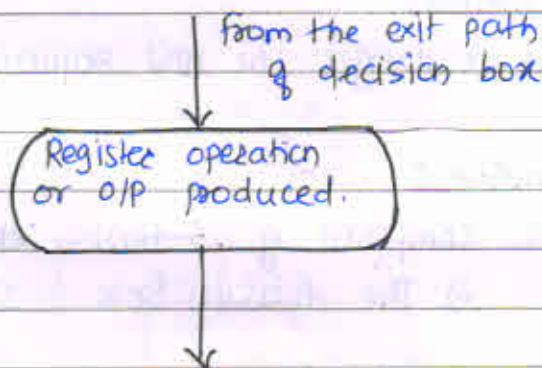 from the exit path
of decision box
Register operation
or O/P produced.